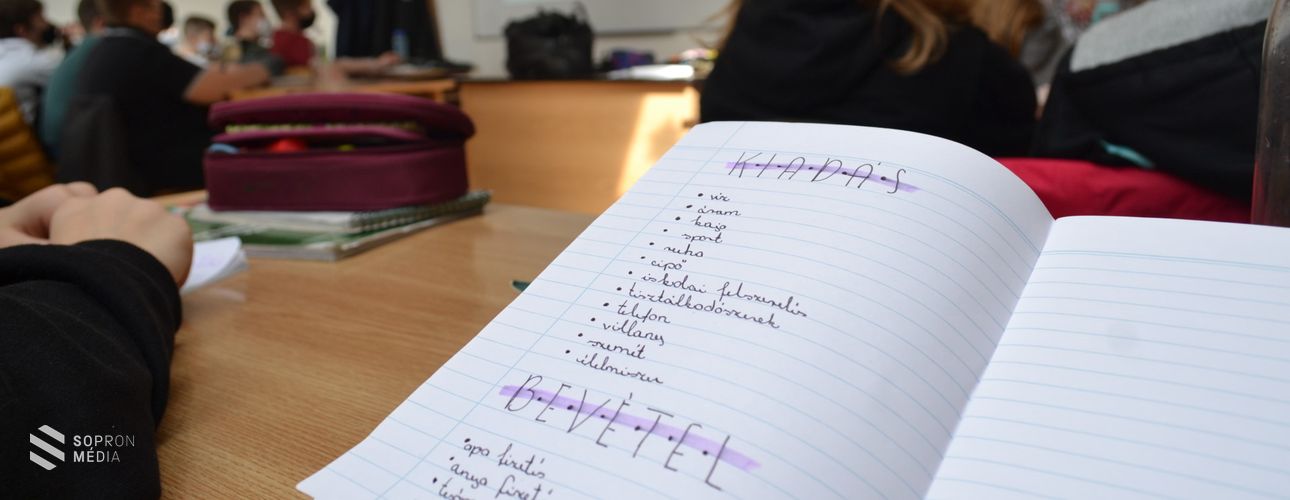 K·I·A·D·Á·S
• víz
• áram
• kaja
• sport
• ruha
• cipő
• iskolai felszerelés
• tisztálkodószerek
• telefon
• villany
• szemét
• élelmiszer
B·E·V·É·T·E·L
• apa fizetés
• anya
SOPRON
MÉDIA